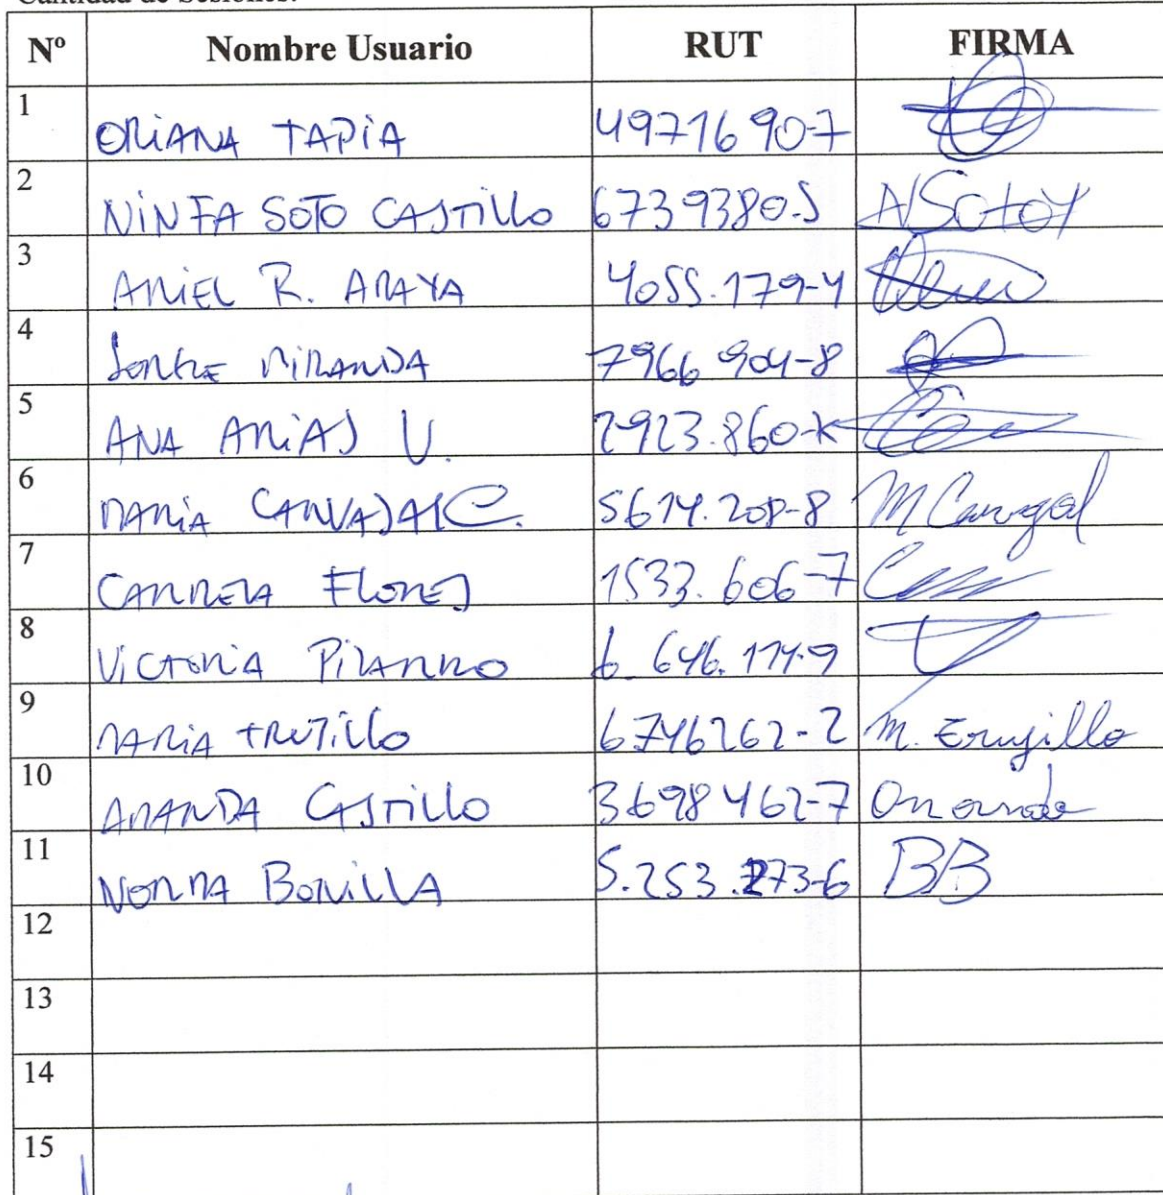 Cantidad de Sesiones:
Nº Nombre Usuario RUT FIRMA
1 ORIANA TAPIA 4971690-7
2 NINFA SOTO CASTILLO 6739380-5 NSotoY
3 ARIEL R. ARAYA 4055.179-4
4 JORGE MIRANDA 7966904-8
5 ANA ARIAS V. 2923.860-K
6 MARIA CARVAJAL C. 5614.208-8 M Carvajal
7 CARMELA FLORES 1533.606-7
8 VICTORIA PIZARRO 6.646.174-9
9 MARIA TRUJILLO 6746262-2 M. Trujillo
10 AMANDA CASTILLO 3698462-7
11 NORMA BONILLA 5.253.273-6 BB
12
13
14
15